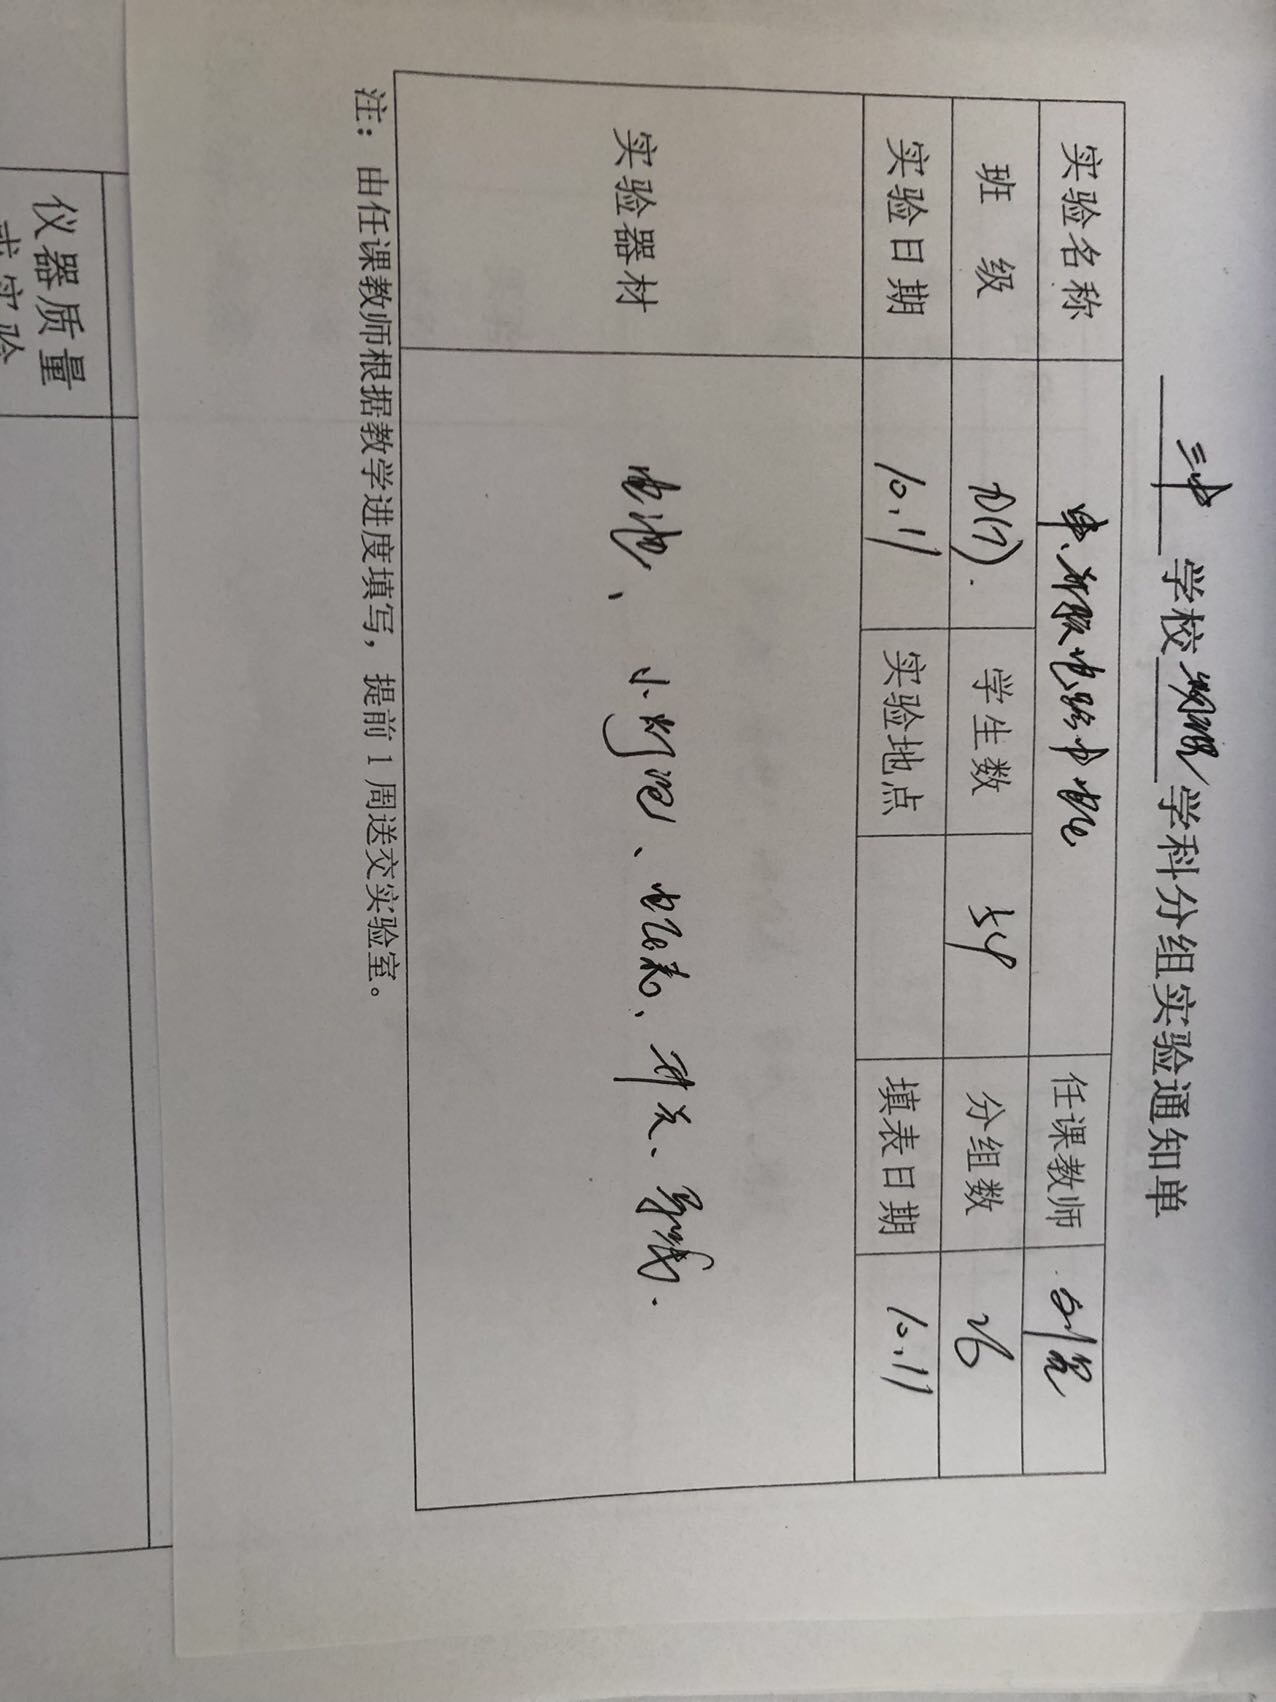 三中学校物理学科分组实验通知单
实验名称 串、并联电路中电流 任课教师
班 级 九(7). 学生数 54 分组数 26
实验日期 10.11 实验地点 填表日期 10.11
实验器材 电池、小灯泡、电流表、开关、导线.
注：由任课教师根据教学进度填写，提前1周送交实验室。
仪器质量
或实验